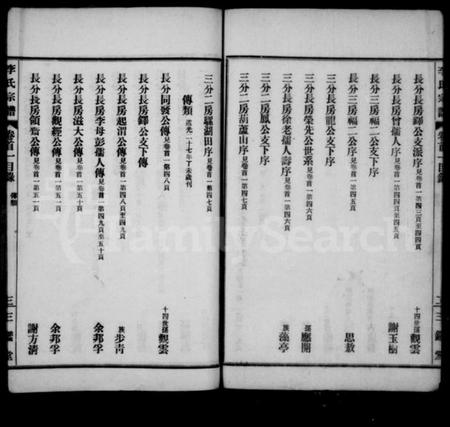 李氏宗譜 卷首 目錄
長分長房鐸公支派序 見卷首一第四三頁至四四頁 十四世孫觀雲
長分長房曾孺人序 見卷首一第四四頁 謝玉樹
長分三房福二公支下序
長分三房福二公支下序 見卷首一第四五頁 思敖
長分長房龍公支下序
長分長房榮先公世系 見卷首一第四六頁 孫應開
長分長房徐老孺人壽序 見卷首一第四六頁 族藻亭
二分二房鳳公支下序
二分二房葫蘆山序 見卷首一第四七頁
三分二房騾湖田序 見卷首一第四七頁
傳類 道光二十七年丁未歲刊
長分同賢公傳 見卷首一第四八頁 十四世孫觀雲
長分長房鐸公支下傳
長分長房起渭公傳 見卷首一第四八頁至四九頁 族步青
長分長房李母彭孺人傳 見卷首一第四九頁至五十頁 余邦孚
長分長房溢大公傳 見卷首一第五十頁
長分長房觀經公傳 見卷首一第五一頁 余邦孚
長分長房領喬公傳 見卷首一第五一頁 謝方清
李氏宗譜 卷首一目錄 傳類 三 三鑑堂
FamilySearch